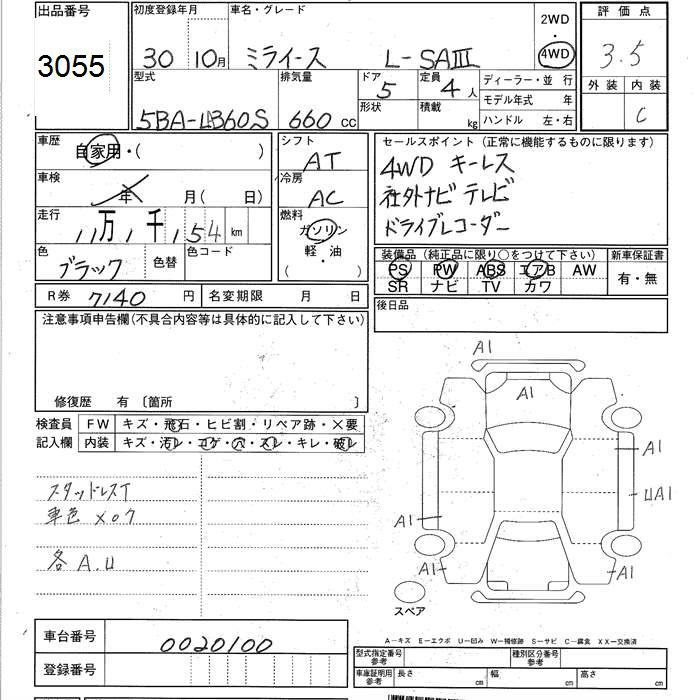 出品番号 初度登録年月 車名・グレード 2WD 評価点
3055 30 10月 ミライース L-SAⅢ ・ 4WD 3.5
型式 排気量 ドア 5 定員 4人 ディーラー・並 行 外装 内装
5BA-LA360S 660 CC 形状 積載 kg モデル年式 年 C
ハンドル 左・右
車歴 自家用・( ) シフト AT セールスポイント(正常に機能するものに限ります)
車検 年 月( 日) 冷房 AC 4WD キーレス
社外ナビ テレビ
走行 11万1千154km 燃料 ガソリン ドライブレコーダー
色 ブラック 色替 色コード 軽・油 ( )
装備品(純正品に限り○をつけて下さい) 新車保証書
PS PW ABS エアB AW 有・無
SR ナビ TV カワ
R券 7140円 名変期限 月 日 後日品
注意事項申告欄(不具合内容等は具体的に記入して下さい)
修復歴 有 〔箇所 〕
検査員 FW キズ・飛石・ヒビ割・リペア跡・×要
記入欄 内装 キズ・汚レ・コゲ・穴・スレ・キレ・破レ
スタッドレスT
車色 X07
各 A.U
A1
A1
A1
UA1
A1
A1
A1
スペア
車台番号 0020100
登録番号
A-キズ E-エクボ U-凹み W-補修跡 S-サビ C-腐食 XX-交換済
型式指定番号 参考 種別区分番号 参考
車庫証明用 参考 長さ cm 幅 cm 高さ cm